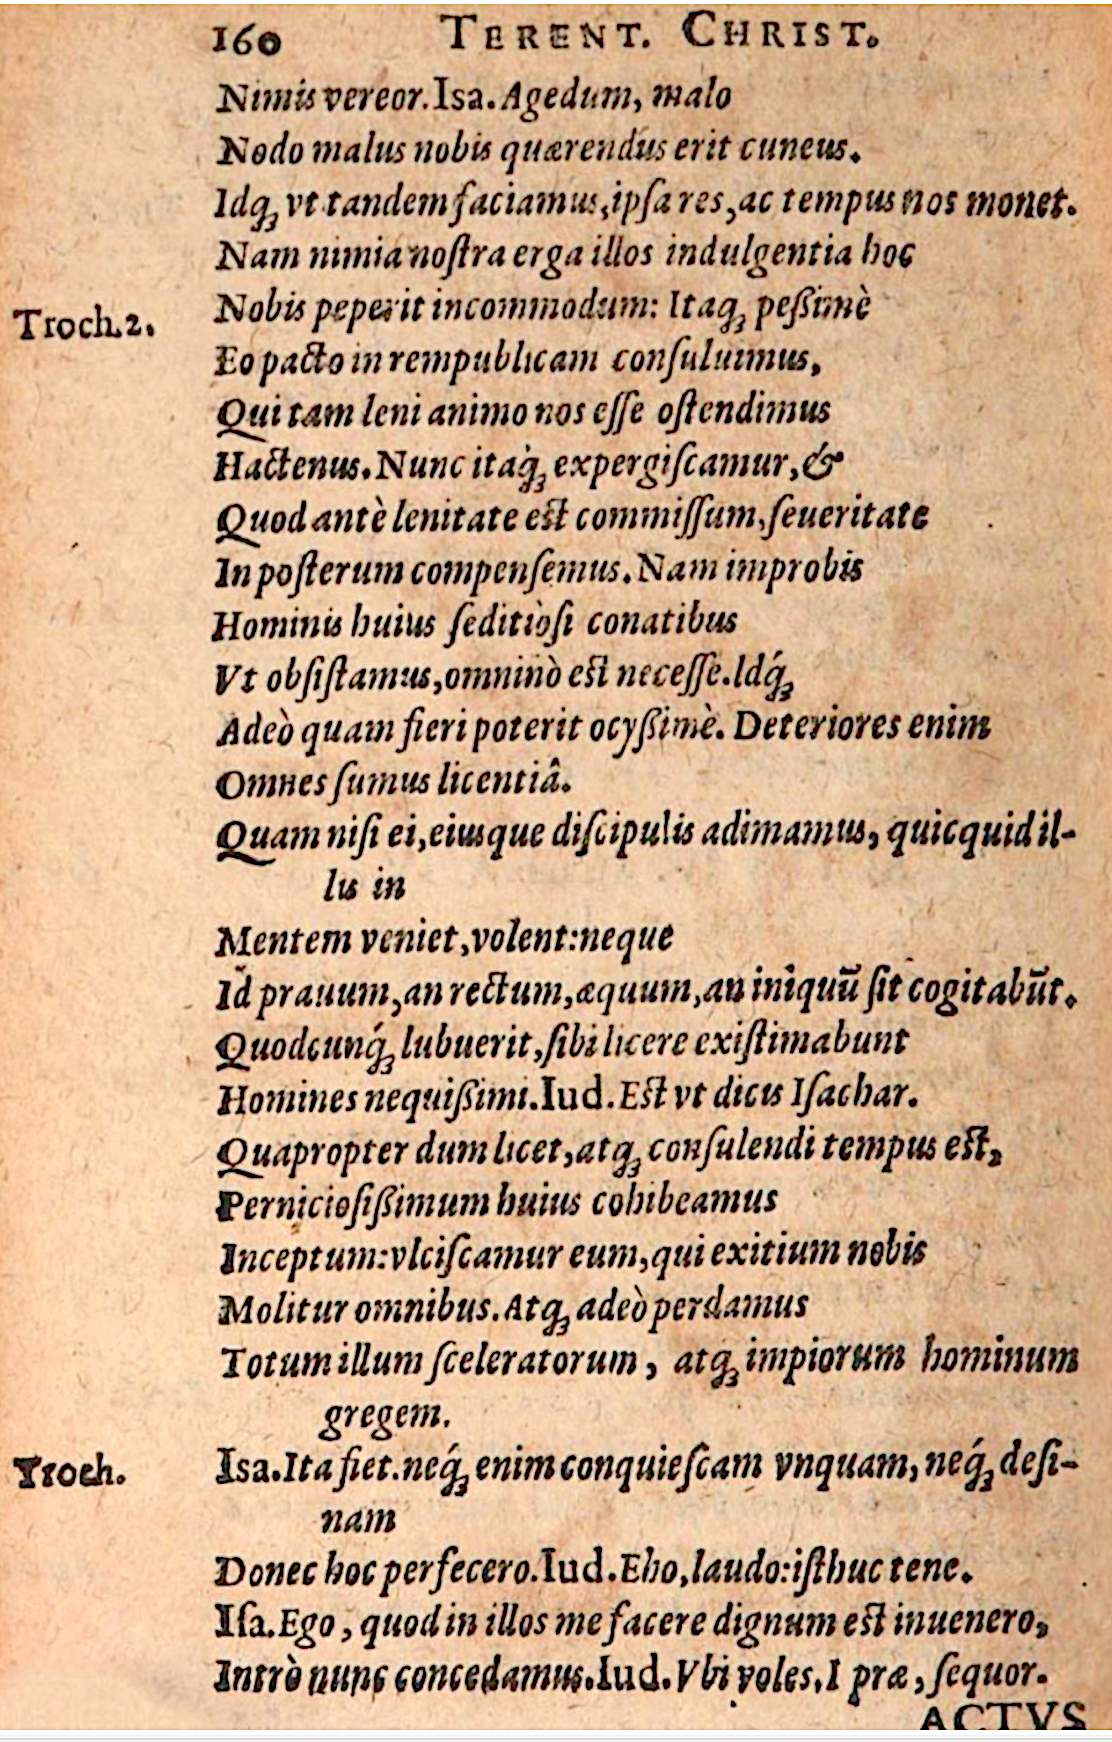 160 TERENT. CHRIST.
Nimis vereor. Isa. Agedum, malo
Nodo malus nobis quærendus erit cuneus.
Idq́ꝫ vt tandem faciamus, ipſa res, ac tempus nos monet.
Nam nimia noſtra erga illos indulgentia hoc
Troch. 2. Nobis peperit incommodum: Itaqꝫ peßimè
Eo pacto in rempublicam conſuluimus,
Qui tam leni animo nos eſſe oſtendimus
Hactenus. Nunc itaq́ꝫ expergiſcamur, &
Quod antè lenitate eſt commiſſum, ſeueritate
In poſterum compenſemus. Nam improbis
Hominis huius ſeditioſi conatibus
Vt obſiſtamus, omninò eſt neceſſe. Idq́ꝫ
Adeò quam fieri poterit ocyßimè. Deteriores enim
Omnes ſumus licentiâ.
Quam niſi ei, eiusque diſcipulis adimamus, quicquid il-
lis in
Mentem veniet, volent: neque
Id prauum, an rectum, æquum, an iniquū ſit cogitabūt.
Quodcunq́ꝫ lubuerit, ſibi licere exiſtimabunt
Homines nequißimi. Iud. Eſt vt dicis Iſachar.
Quapropter dum licet, atqꝫ conſulendi tempus eſt,
Pernicioſißimum huius cohibeamus
Inceptum: vlciſcamur eum, qui exitium nobis
Molitur omnibus. Atqꝫ adeò perdamus
Totum illum ſceleratorum, atqꝫ impiorum hominum
gregem.
Troch. Isa. Ita fiet. neq́ꝫ enim conquieſcam vnquam, neq́ꝫ deſi-
nam
Donec hoc perfecero. Iud. Eho, laudo: iſthuc tene.
Iſa. Ego, quod in illos me facere dignum eſt inuenero,
Intrò nunc concedamus. Iud. Vbi voles. I præ, ſequor.
ACTVS